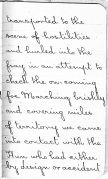 transported to the
scene of hostilities
and hurled into the
fray in an attempt to
check the on coming
foe Marching briskly
and covering miles
of territory we came
into contact with the
Hun who had either
by design or accident